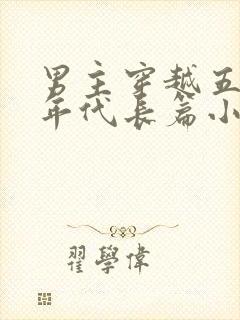 男主穿越五
年代长篇小
翟學偉